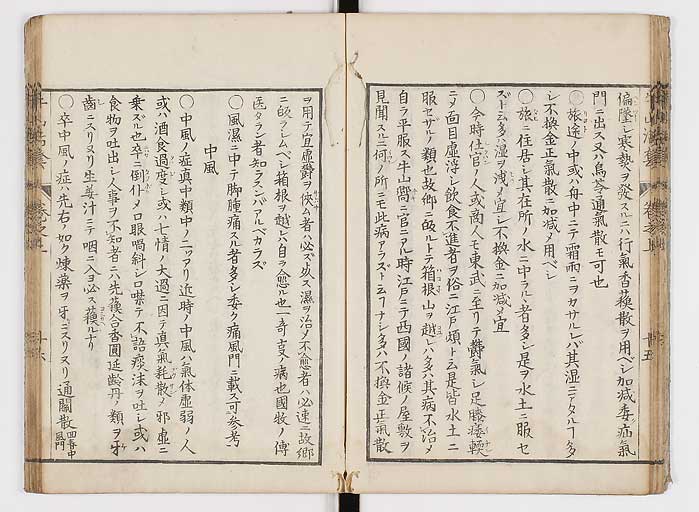 偏墜シ寒勢ヲ發スルニハ行氣香蘓散ヲ用ベシ加減委疝氣
門ニ出ス又ハ烏苓通氣散モ可也
〇旅途ノ中或ハ舟中ニテ霜雨ニヲカサルレバ其湿ニアタル丨多
シ不換金正氣散ニ加減ノ用ベシ
〇旅ニ住居シ其在所ノ水ニ中ラル丶者多シ是ヲ水土ニ服セ
ズト云多ハ湿ヲ洩メ宜シ不換金ニ加減メ宜
〇今時仕官ノ人或ハ商人モ東武ニ至リテ欝氣シ足膝痿輭
ニメ面目虚浮シ飲食不進者ヲ俗ニ江戸煩ト云是皆水土ニ
服セザルノ類也故郷ニ皈ルトテ箱根山ヲ越レハ多ハ其病不治メ
自ラ平服ス牛山嘗ニ官ニアル時江戸ニテ西國ノ諸候ノ屋敷ヲ
見聞スルニ何ノ所ニモ此病アラズト云フナシ多ハ不換金正氣散
ヲ用テ宜虚欝ヲ侠ム者ハ必ズ炎ス濕ヲ治メ不愈者ハ必速ニ故郷
ニ皈ラシムベシ箱根ヲ越レハ自ラ愈ル也一奇叓ノ病也國牧ノ傳
医タラン者知ラズンバアルベカラズ
〇風濕ニ中テ脚腫痛スル者多シ委ク痛風門ニ載ス可参考
中風
〇中風ノ症真中類中ノ二ツアリ近時ノ中風ハ氣体虚弱ノ人
或ハ酒食過度シ或ハ七情ノ大過ニ因テ真氣耗散メ邪虚ニ
乗ズル也卒ニ倒仆メ口眼喎斜シ口噤テ不語痰沫ヲ吐シ或ハ
食物ヲ吐出シ人事ヲ不知者ニハ先蘓合香圓延齢丹ノ類ヲ牙
齒ニスリヌリ生姜汁ニテ咽ニ入ヨ必ス蘓ルナリ
〇卒中風ノ症ハ先右ノ如ク煉薬ヲ牙ニスリヌリ通關散四春中風門